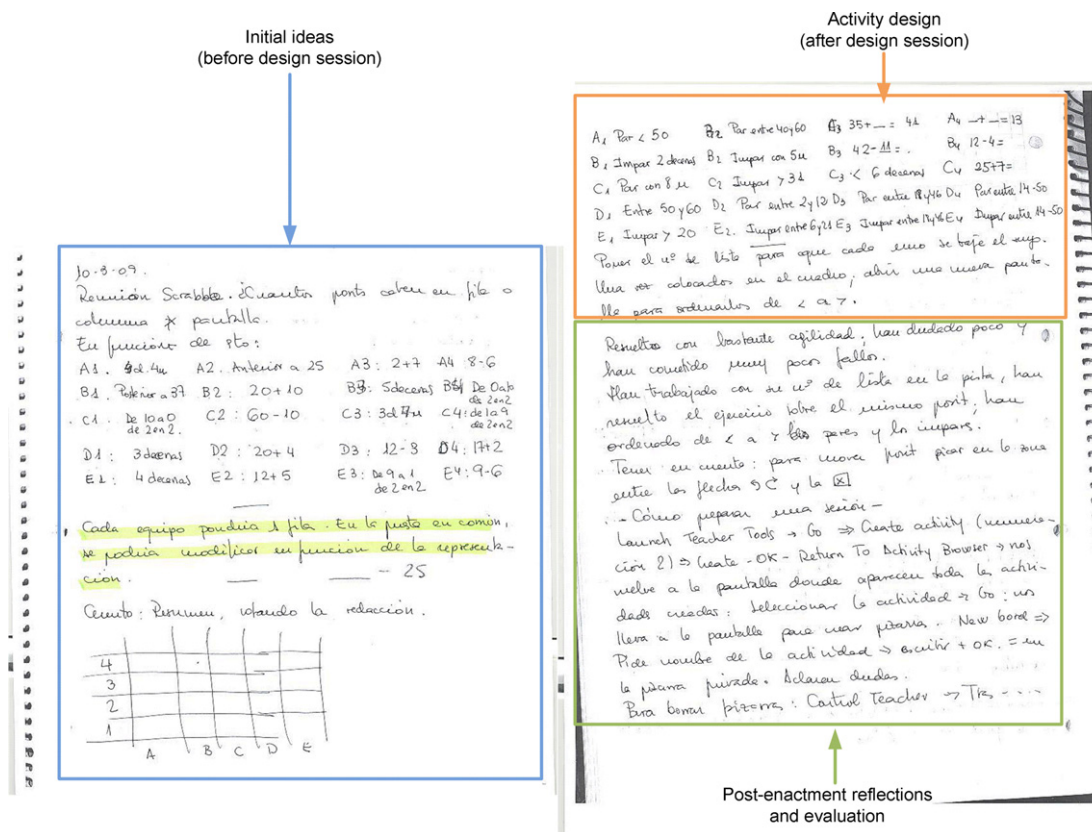 Initial ideas
(before design session)
Activity design
(after design session)
10-3-09.
Reunión Scrabble. ¿Cuantos posits caben en fila o
columna x pantalla.
En función de sto:
A1. 4u A2. Anterior a 25 A3: 2+7 A4 8-6
B1. Posterior a 37 B2: 20+10 B3: 5 decenas B4 De 0 a 10
de 2 en 2
C1. De 10 a 0 C2: 60-10 C3: 3d 7u C4: de 1 a 9
de 2 en 2. de 2 en 2
D1: 3 decenas D2: 20+4 D3: 12-3 D4: 17+2
E1: 4 decenas E2: 12+5 E3: De 9 a 1 E4: 9-6
de 2 en 2
Cada equipo pondría 1 fila. En la puesta en común,
se podría modificar en función de la represent-
ción.
25
Cuento: Resumen, rotando la redacción.
4
3
2
1
A B C D E
A1 Par < 50 B2 Par entre 40 y 60 A3 35+__= 41 A4 __+__=13
B1 Impar 2 decenas B2 Impar con 5u B3 42-11= B4 12-4=
C1 Par con 8u C2 Impar > 31 C3 < 6 decenas C4 25+7=
D1 Entre 50 y 60 D2 Par entre 2 y 12 D3 Par entre 18 y 46 D4 Par entre 14-50
E1 Impar > 20 E2. Impar entre 6 y 21 E3 Impar entre 17 y 45 E4 Impar entre 14-50
Poner el nº de lista para que cada uno se baje el suyo.
Una vez colocados en el cuadro, abrir una nueva panta-
lla para ordenarlos de < a >.
Resuelto con bastante agilidad, han dudado poco y
han cometido muy pocos fallos.
Han trabajado con su nº de lista en la pista, han
resuelto el ejercicio sobre el mismo posit, han
ordenado de < a > los pares y los impares.
Tener en cuenta: para mover posit picar en la zona
entre las flechas y la x
- Cómo preparar una sesión -
Launch Teacher Tools → Go ⇒ Create activity (numera-
ción 2) ⇒ Create - OK - Return To Activity Browser → nos
vuelve a la pantalla donde aparecen toda las activi-
dades creadas: Seleccionar la actividad → Go: nos
lleva a la pantalla para crear pizarra. New board ⇒
Pide nombre de la actividad → escribir + OK. = en
la pizarra privada. Aclaran dudas.
Para borrar pizarras: Control Teacher → Tras - ...
Post-enactment reflections
and evaluation